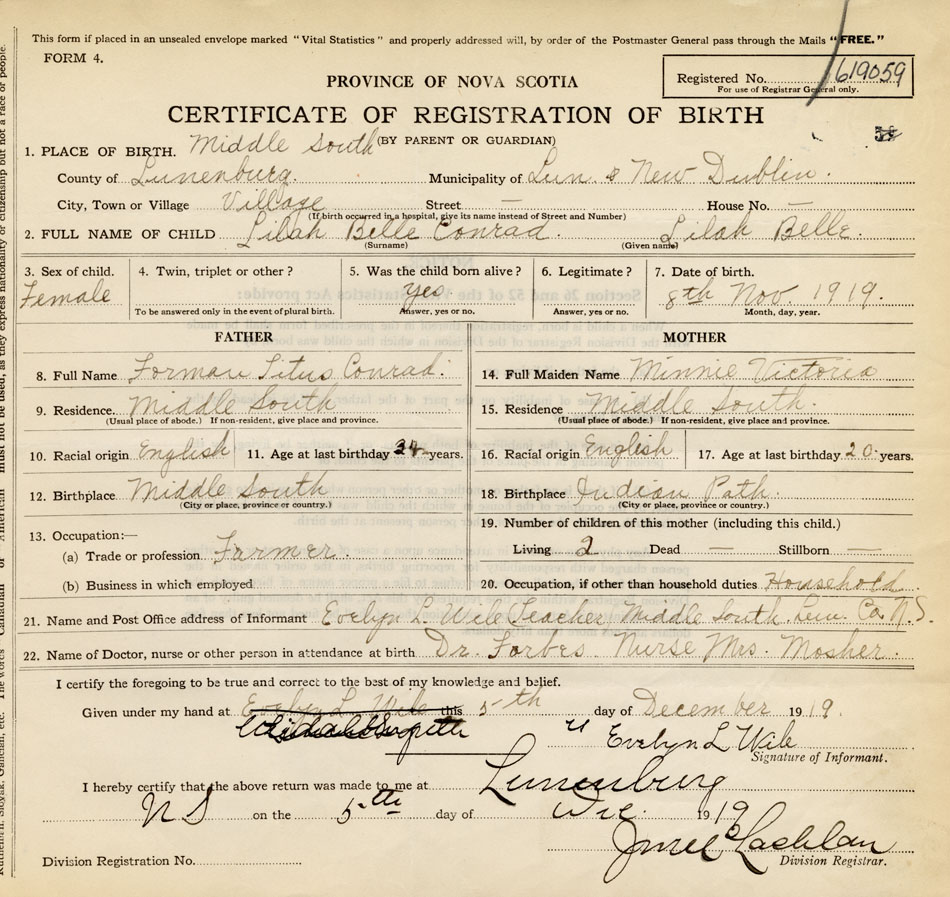 This form if placed in an unsealed envelope marked "Vital Statistics" and properly addressed will, by order of the Postmaster General pass through the Mails "FREE."
FORM 4.
Registered No. 619059
For use of Registrar General only.
PROVINCE OF NOVA SCOTIA
CERTIFICATE OF REGISTRATION OF BIRTH
(BY PARENT OR GUARDIAN)
1. PLACE OF BIRTH. Middle South
County of Lunenburg. Municipality of Lun. & New Dublin.
City, Town or Village Village Street — House No. —
(If birth occurred in a hospital, give its name instead of Street and Number)
2. FULL NAME OF CHILD Lilah Belle Conrad. Lilah Belle.
(Surname) (Given name)
3. Sex of child. 4. Twin, triplet or other? 5. Was the child born alive? 6. Legitimate? 7. Date of birth.
Female yes 8th Nov. 1919.
To be answered only in the event of plural birth. Answer, yes or no. Answer, yes or no. Month, day, year.
FATHER MOTHER
8. Full Name Forman Titus Conrad. 14. Full Maiden Name Minnie Victoria
9. Residence. Middle South 15. Residence Middle South.
(Usual place of abode.) If non-resident, give place and province. (Usual place of abode.) If non-resident, give place and province.
10. Racial origin English 11. Age at last birthday 34 years. 16. Racial origin English 17. Age at last birthday 20 years.
12. Birthplace Middle South 18. Birthplace Indian Path.
(City or place, province or country.) (City or place, province or country.)
13. Occupation:— 19. Number of children of this mother (including this child.)
(a) Trade or profession Farmer. Living 2 Dead — Stillborn —
(b) Business in which employed 20. Occupation, if other than household duties Household
21. Name and Post Office address of Informant Evelyn L Wile (Teacher) Middle South Lun. Co. N.S.
22. Name of Doctor, nurse or other person in attendance at birth Dr. Forbes. Nurse Mrs. Mosher.
I certify the foregoing to be true and correct to the best of my knowledge and belief.
Given under my hand at Evelyn L Wile this 5-th day of December 1919.
Evelyn L Wile
Signature of Informant.
I hereby certify that the above return was made to me at Lunenburg
N S on the 5th day of Dec. 1919
Division Registration No. Division Registrar.